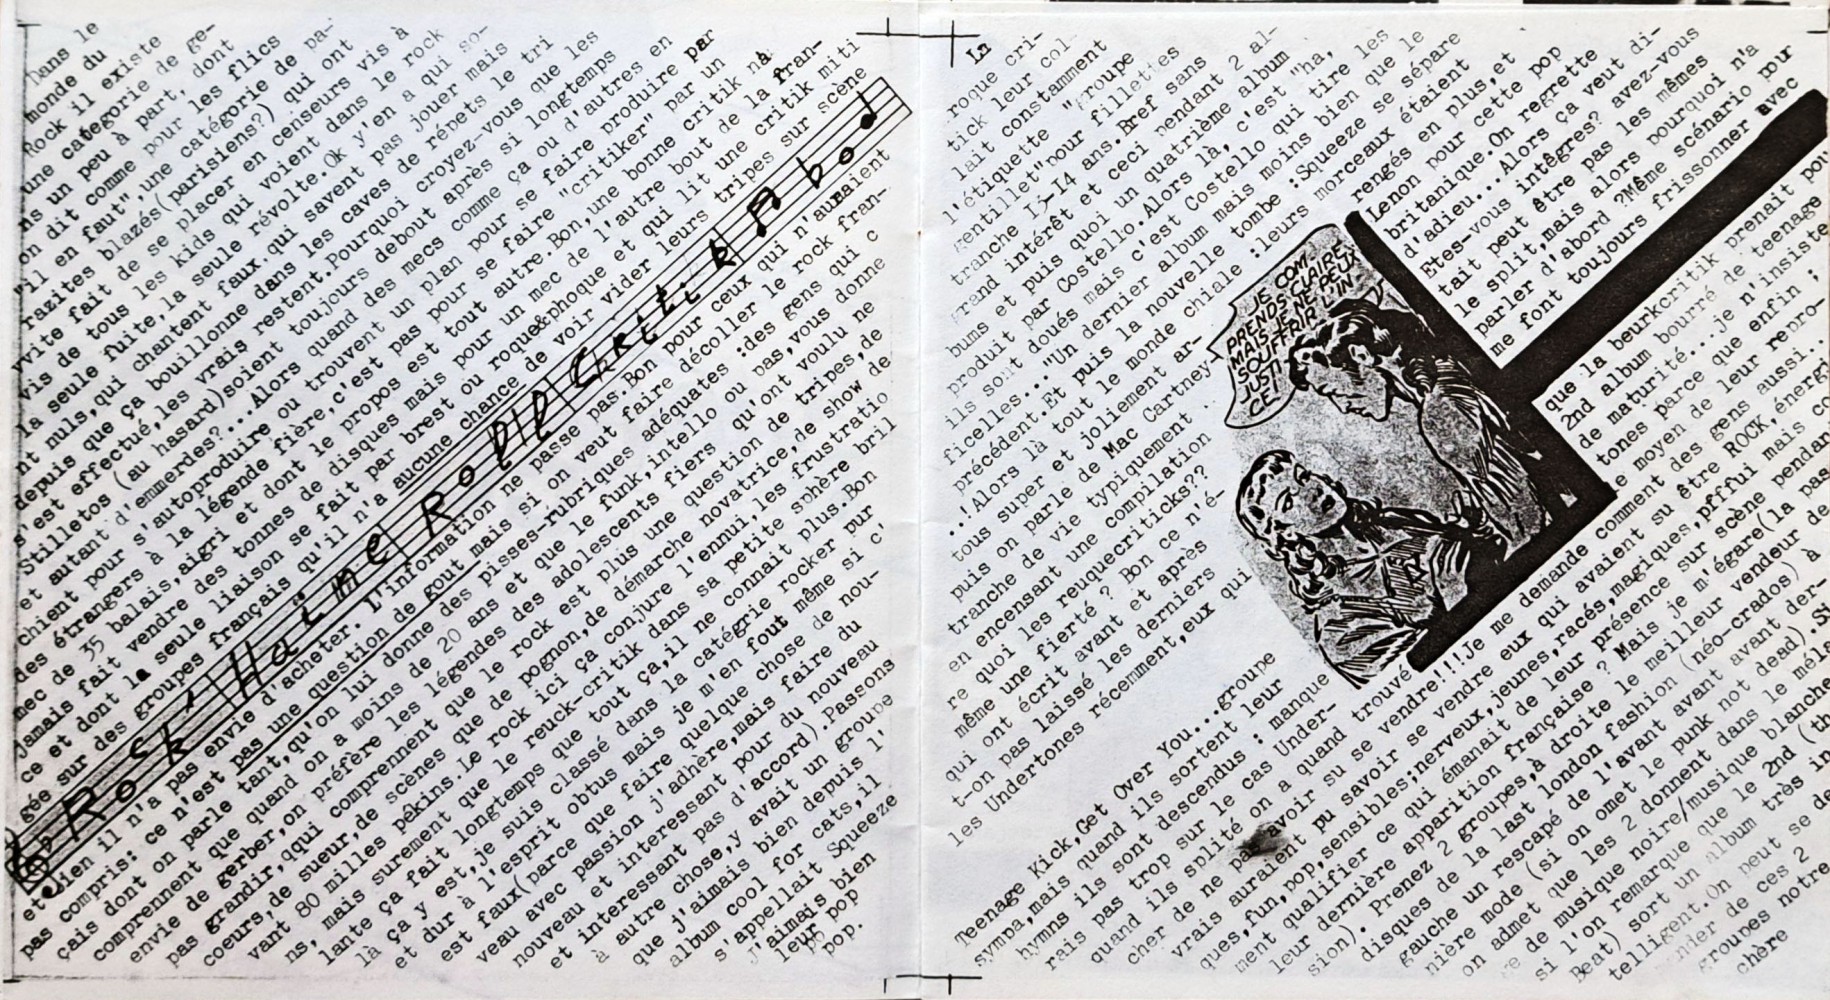 Dans le
monde du
Rock il existe
une catégorie de ge-
ns un peu à part, dont
on dit comme pour les flics
"il en faut",une catégorie de pa-
razites blazés(parisiens?) qui ont
vite fait de se placer en censeurs vis à
vis de tous les kids qui voient dans le rock
la seule fuite,la seule révolte.Ok y'en a qui so-
nt nuls,qui chantent faux.qui savent pas jouer mais
depuis que ça bouillonne dans les caves de répets le tri
s'est effectué,les vrais restent.Pourquoi croyez-vous que les
Stilletos (au hasard)soient toujours debout après si longtemps
et autant d'emmerdes?...Alors quand des mecs comme ça ou d'autres en
chient pour s'autoproduire ou trouvent un plan pour se faire produire par
des étrangers à la légende fière,c'est pas pour se faire "critiker" par un
mec de 35 balais,aigri et dont le propos est tout autre.Bon,une bonne critik n'a
jamais fait vendre des tonnes de disques mais pour un mec de l'autre bout de la fran-
ce et dont la seule liaison se fait par brest ou roque&phoque et qui lit une critik miti
gée sur des groupes français qu'il n'a aucune chance de voir vider leurs tripes sur scène
Rock' Haine Roll Chriti k Abo
et bien il n'a pas envie d'acheter. L'information ne passe pas.Bon pour ceux qui n'auraient
pas compris: ce n'est pas une question de gout mais si on veut faire décoller le rock fran-
çais dont on parle tant,qu'on lui donne des pisses-rubriques adéquates :des gens qui c
comprennent que quand on a moins de 20 ans et que le funk,intello ou pas,vous donne
envie de gerber,on préfère les légendes des adolescents fiers qu'ont voulu ne
pas grandir,qqui comprennent que le rock est plus une question de tripes,de
coeurs,de sueur,de scènes que de pognon,de démarche novatrice,de show de
vant 80 milles pékins.Le rock ici ça conjure l'ennui,les frustratio
ns, mais surement que le reuck-critik dans sa petite sphère bril
lante ça fait longtemps que tout ça,il ne connait plus.Bon
là ça y est,je suis classé dans la catégrie rocker pur
et dur à l'esprit obtus mais je m'en fout même si c'
est faux(parce que faire quelque chose de nou-
veau avec passion j'adhère,mais faire du
nouveau et interessant pour du nouveau
et interessant pas d'accord).Passons
à autre chose,y avait un groupe
que j'aimais bien depuis l'
album cool for cats,il
s'appellait Squeeze
j'aimais bien
leur pop
pop.
troque cri-
tick leur col-
lait constamment
l'étiquette "groupe
gentillet"pour fillettes
tranche 13-14 ans.Bref sans
grand intérêt et ceci pendant 2 al-
bums et puis quoi un quatrième album
produit par Costello.Alors là, c'est "ha,
ils sont doués mais c'est Costello qui tire les
ficelles..."Un dernier album mais moins bien que le
précédent.Et puis la nouvelle tombe :Squeeze se sépare
..!Alors là tout le monde chiale :leurs morceaux étaient
tous super et joliement ar- rengés en plus,et
puis on parle de Mac Cartney- Lenon pour cette pop
tranche de vie typiquement britanique.On regrette
en encensant une compilation d'adieu...Alors ça veut di-
re quoi les reuquecriticks?? Etes-vous intègres? avez-vous
même une fierté ? Bon ce n'é- tait peut être pas les mêmes
qui ont écrit avant et après le split,mais alors pourquoi n'a
t-on pas laissé les derniers parler d'abord ?Même scénario pour
les Undertones récemment,eux qui me font toujours frissonner avec
JE COM
PRENDS CLAIRE
MAIS JE NE PEUX
SOUFFRIR L'IN
JUSTI
CE!
Teenage Kick,Get Over You...groupe que la beurkcritik prenait pou
sympa,mais quand ils sortent leur 2nd album bourré de teenage
hymns ils sont descendus : manque de maturité...je n'insiste
rais pas trop sur le cas Under- tones parce que enfin ;
quand ils splité on a quand trouvé le moyen de leur repro-
cher de ne pas avoir su se vendre!!!Je me demande comment des gens aussi..
vrais auraient pu savoir se vendre eux qui avaient su être ROCK,énergi
ques,fun,pop,sensibles;nerveux,jeunes,racés,magiques,pfffui mais co
ment qualifier ce qui émanait de leur présence sur scène pendan
leur dernière apparition française ? Mais je m'égare(la pas
sion). Prenez 2 groupes,à droite le meilleur vendeur de
disques de la last london fashion (néo-crados) à
gauche un rescapé de l'avant avant der-
nière mode (si on omet le punk not dead).Si
on admet que les 2 donnent dans le méla
ge de musique noire/musique blanche
si l'on remarque que le 2nd (th
Beat) sort un album très in
telligent.On peut se de
mander de ces 2
groupes notre
chère